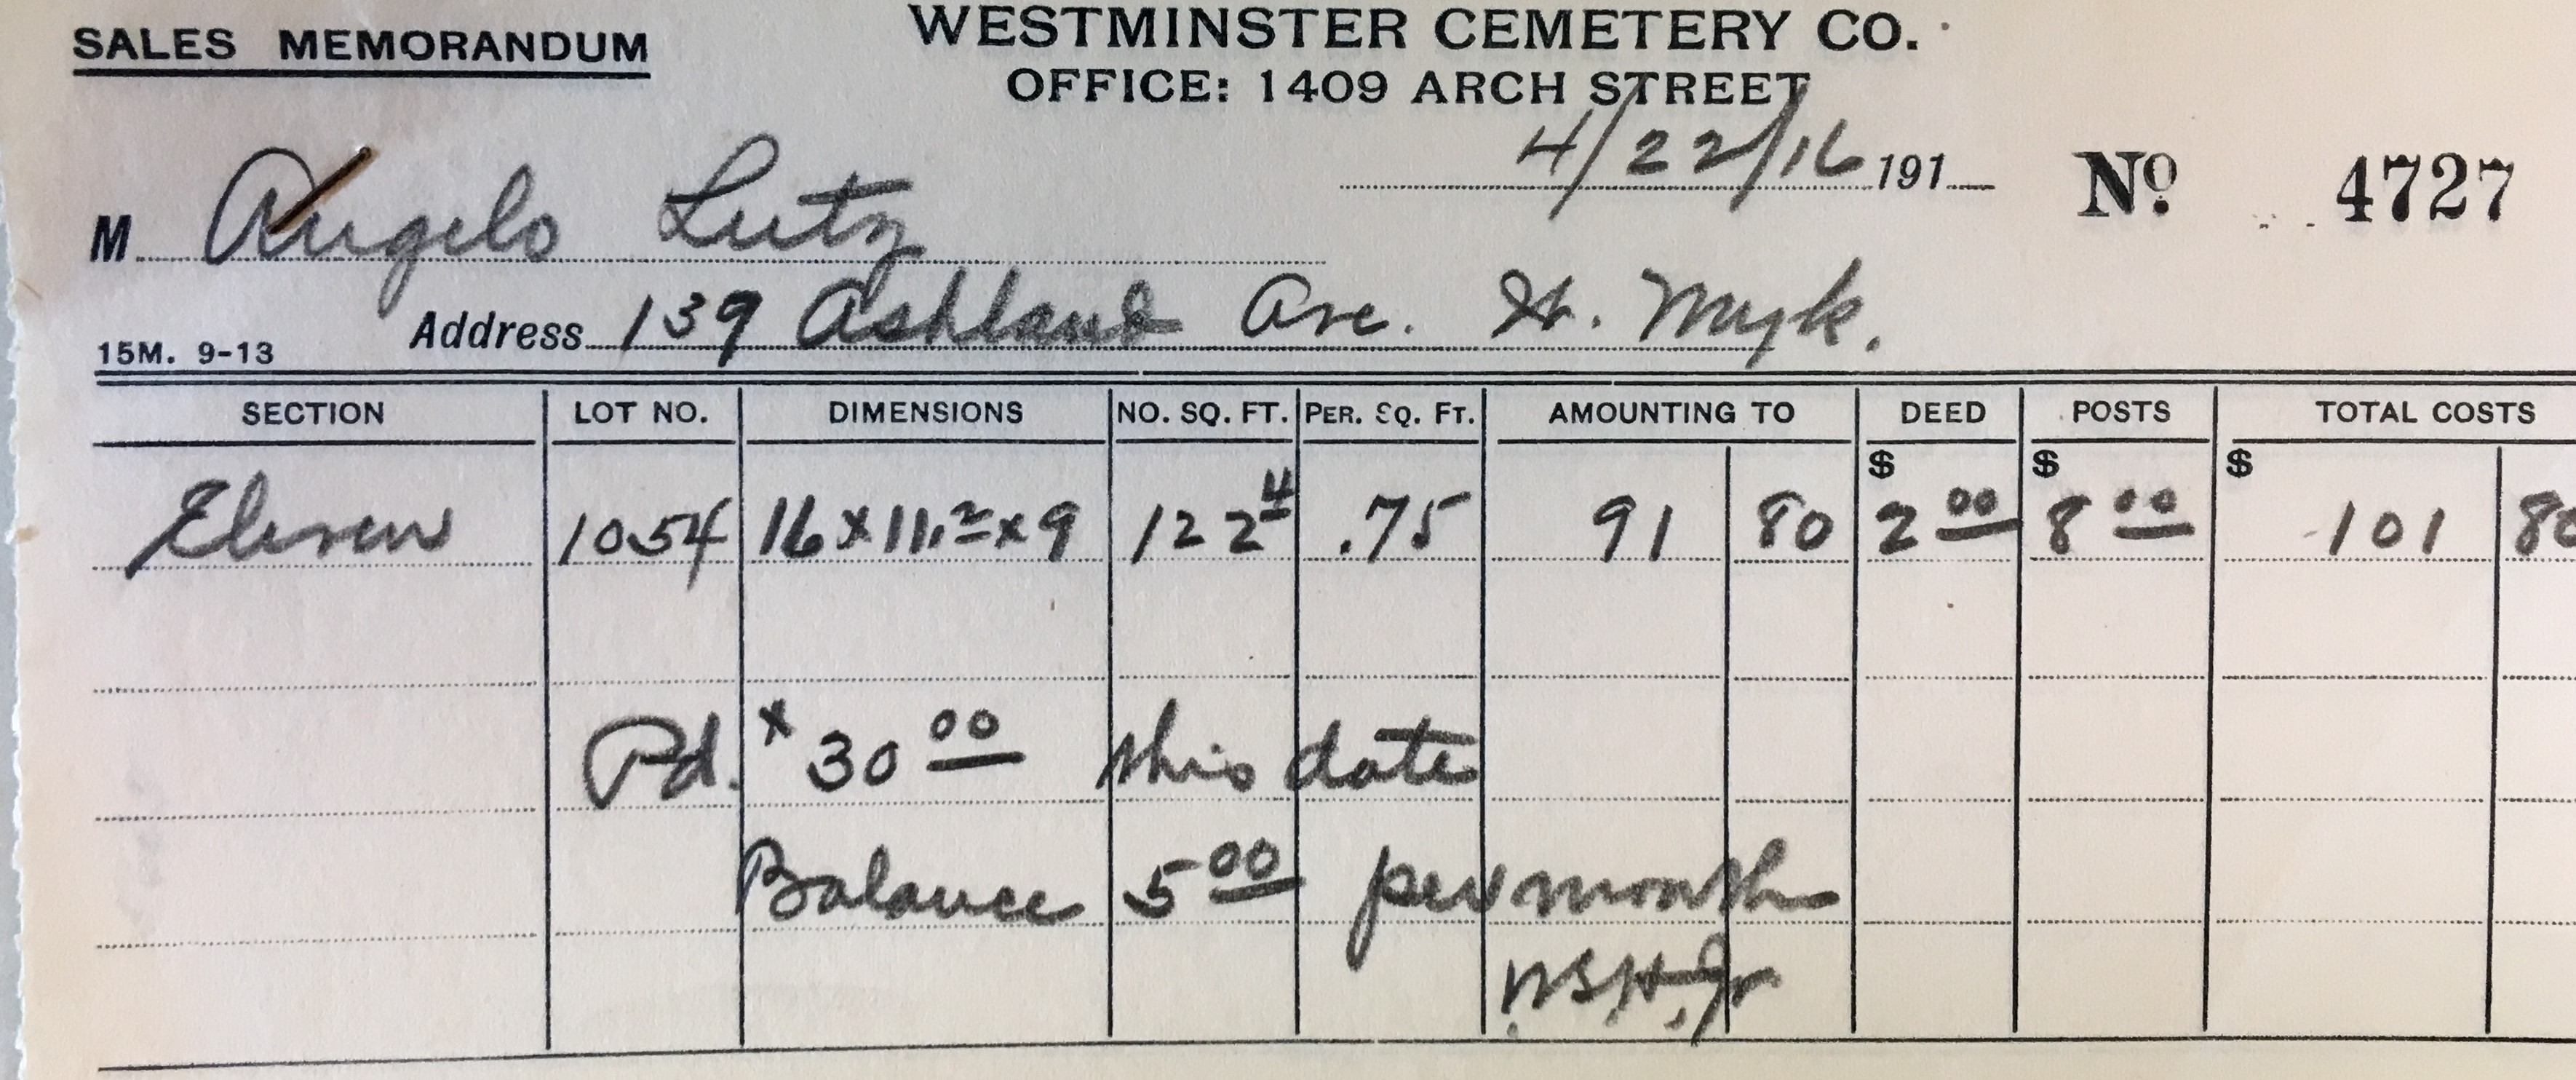 SALES MEMORANDUM
WESTMINSTER CEMETERY CO.
OFFICE: 1409 ARCH STREET
4/22/16 191
No. 4727
M Angelo Lutz
Address 139 Ashland Ave. W. Myk.
15M. 9-13
SECTION LOT NO. DIMENSIONS NO. SQ. FT. PER. SQ. FT. AMOUNTING TO DEED POSTS TOTAL COSTS
Eleven 1054 16 x 11.2 x 9 122 4 .75 91 80 $ 2 00 $ 8 00 $ 101 80
Pd. 30 00 this date
Balance 5 00 per month